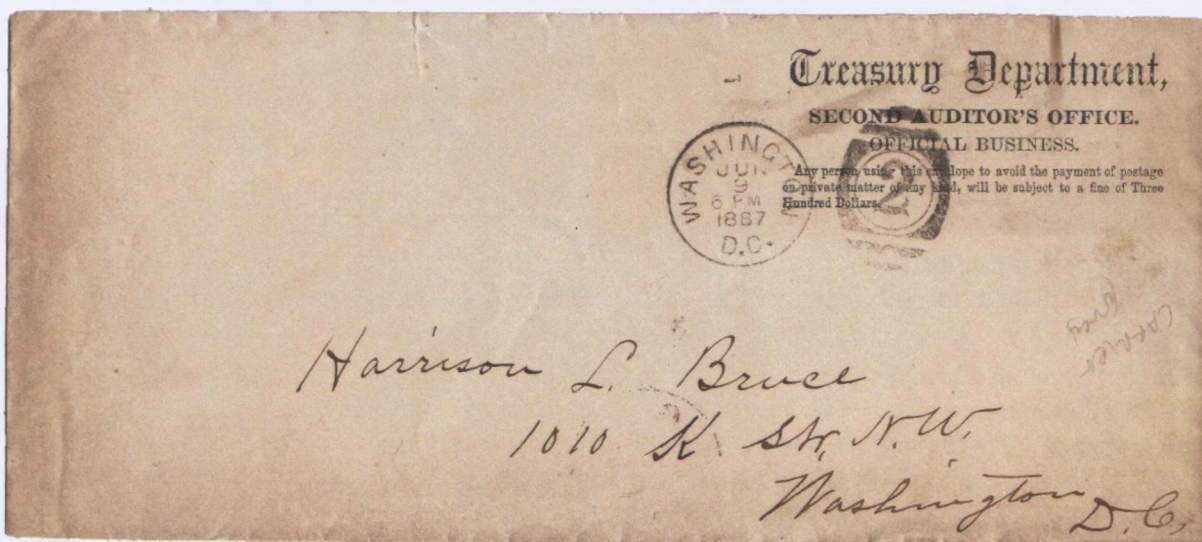 Treasury Department,
SECOND AUDITOR'S OFFICE.
OFFICIAL BUSINESS.
Any person using this envelope to avoid the payment of postage
on private matter of any kind, will be subject to a fine of Three
Hundred Dollars.
WASHINGTON
JUN
9
6 PM
1887
D.C.
2
Harrison L. Bruce
1010 K Str, N.W.
Washington
D.C.